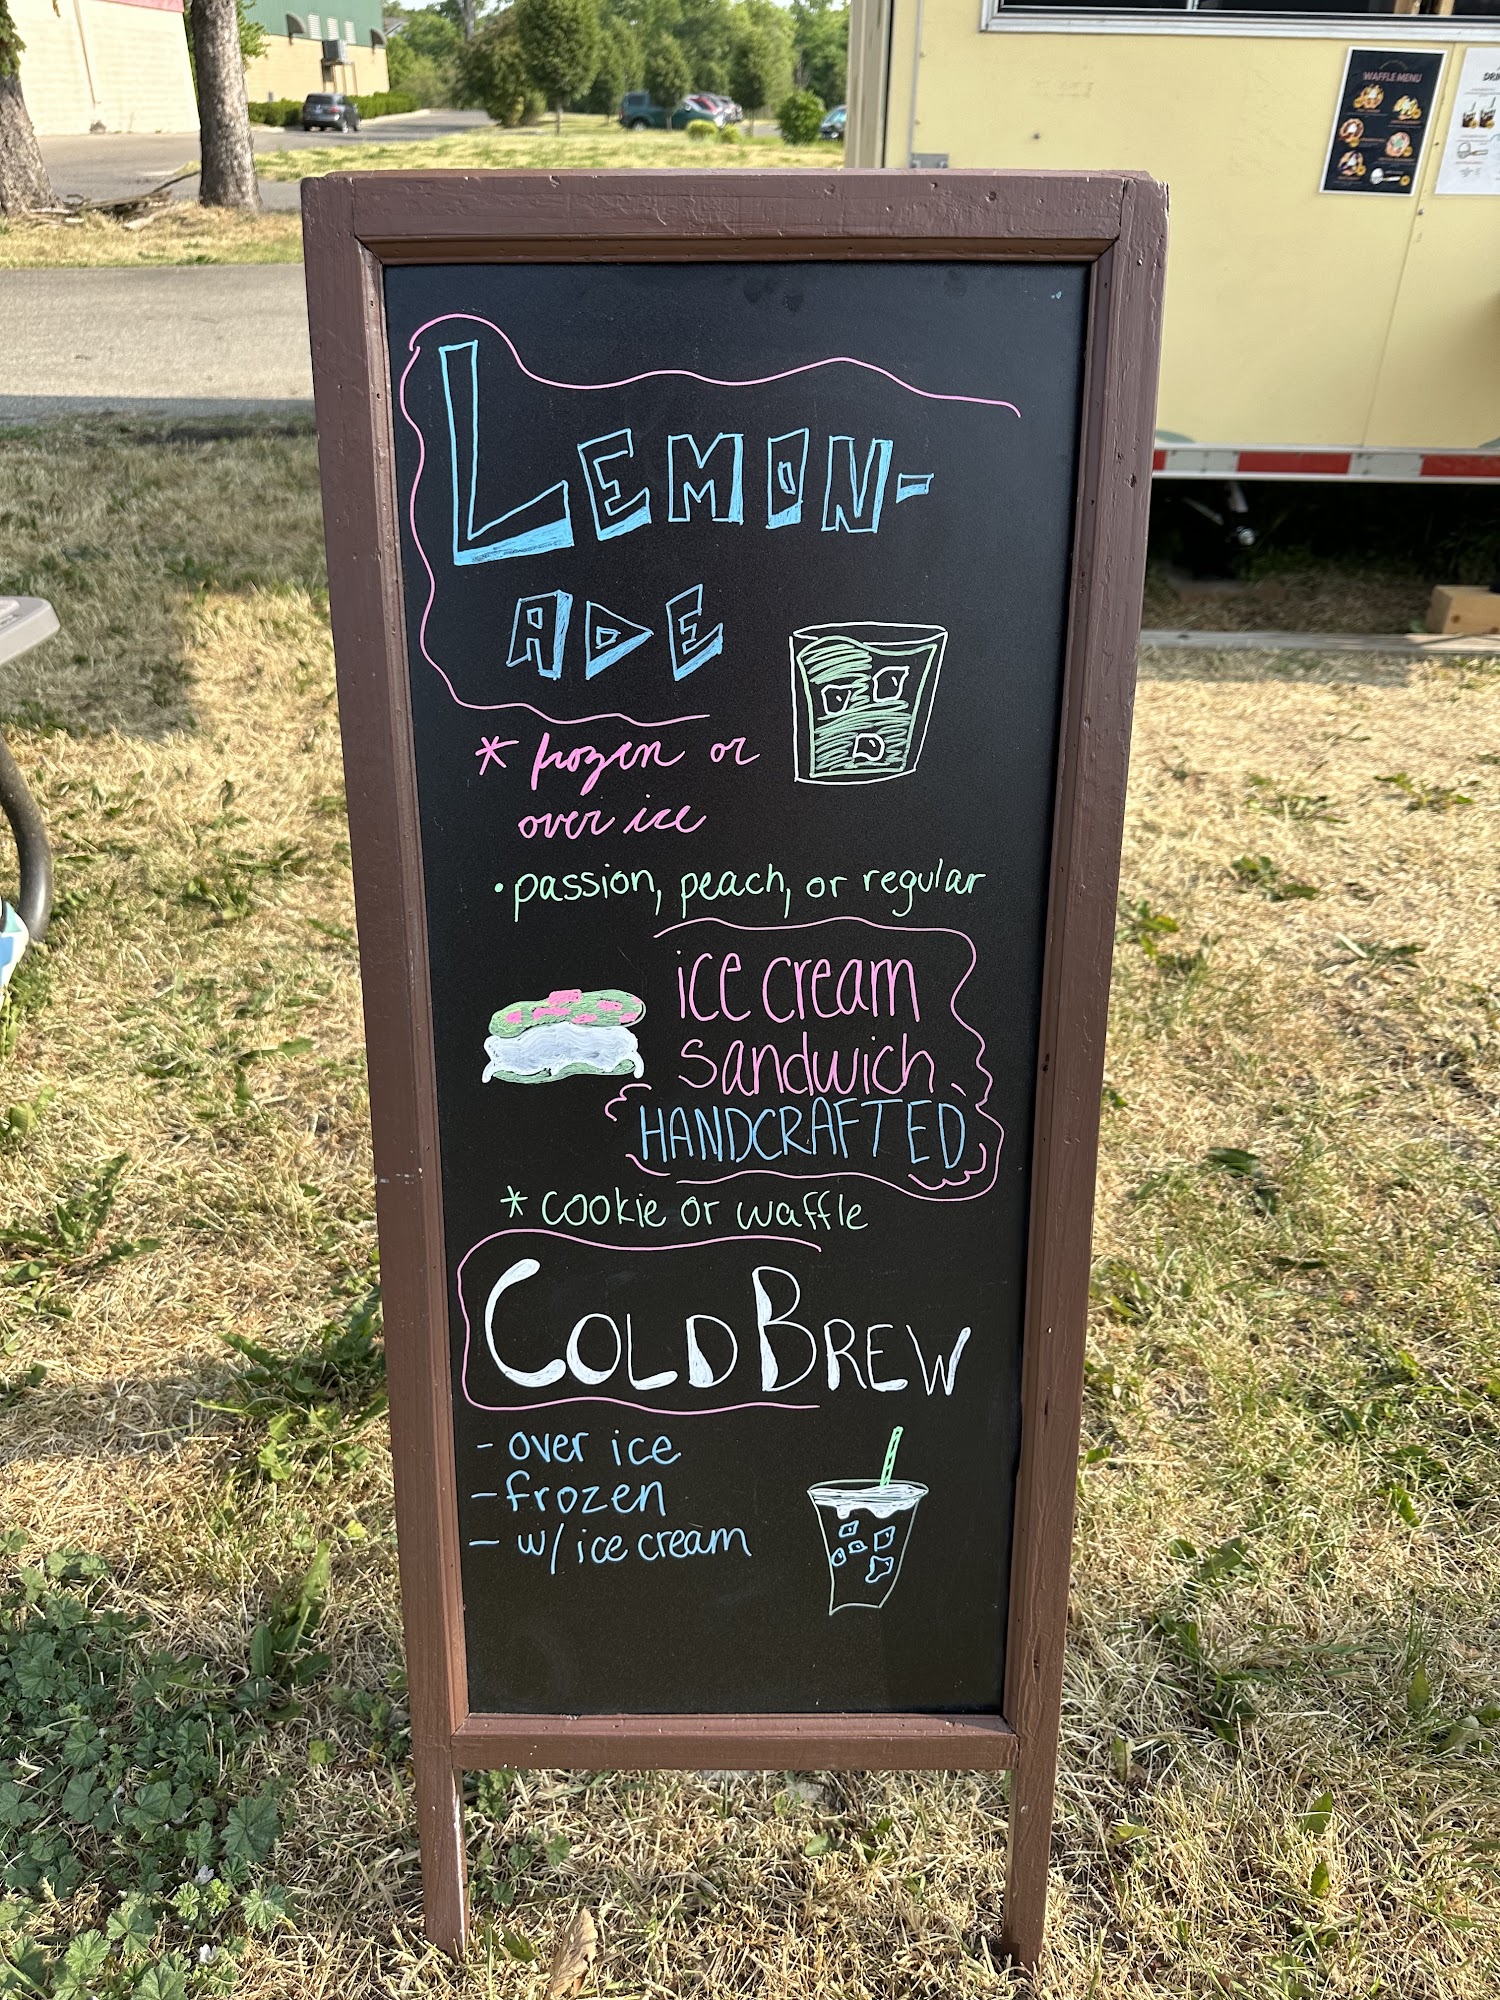 LEMON-
ADE
* frozen or
over ice
• passion, peach, or regular
ice cream
sandwich
HANDCRAFTED
* cookie or waffle
COLD BREW
- over ice
- frozen
- w/ ice cream
WAFFLE MENU